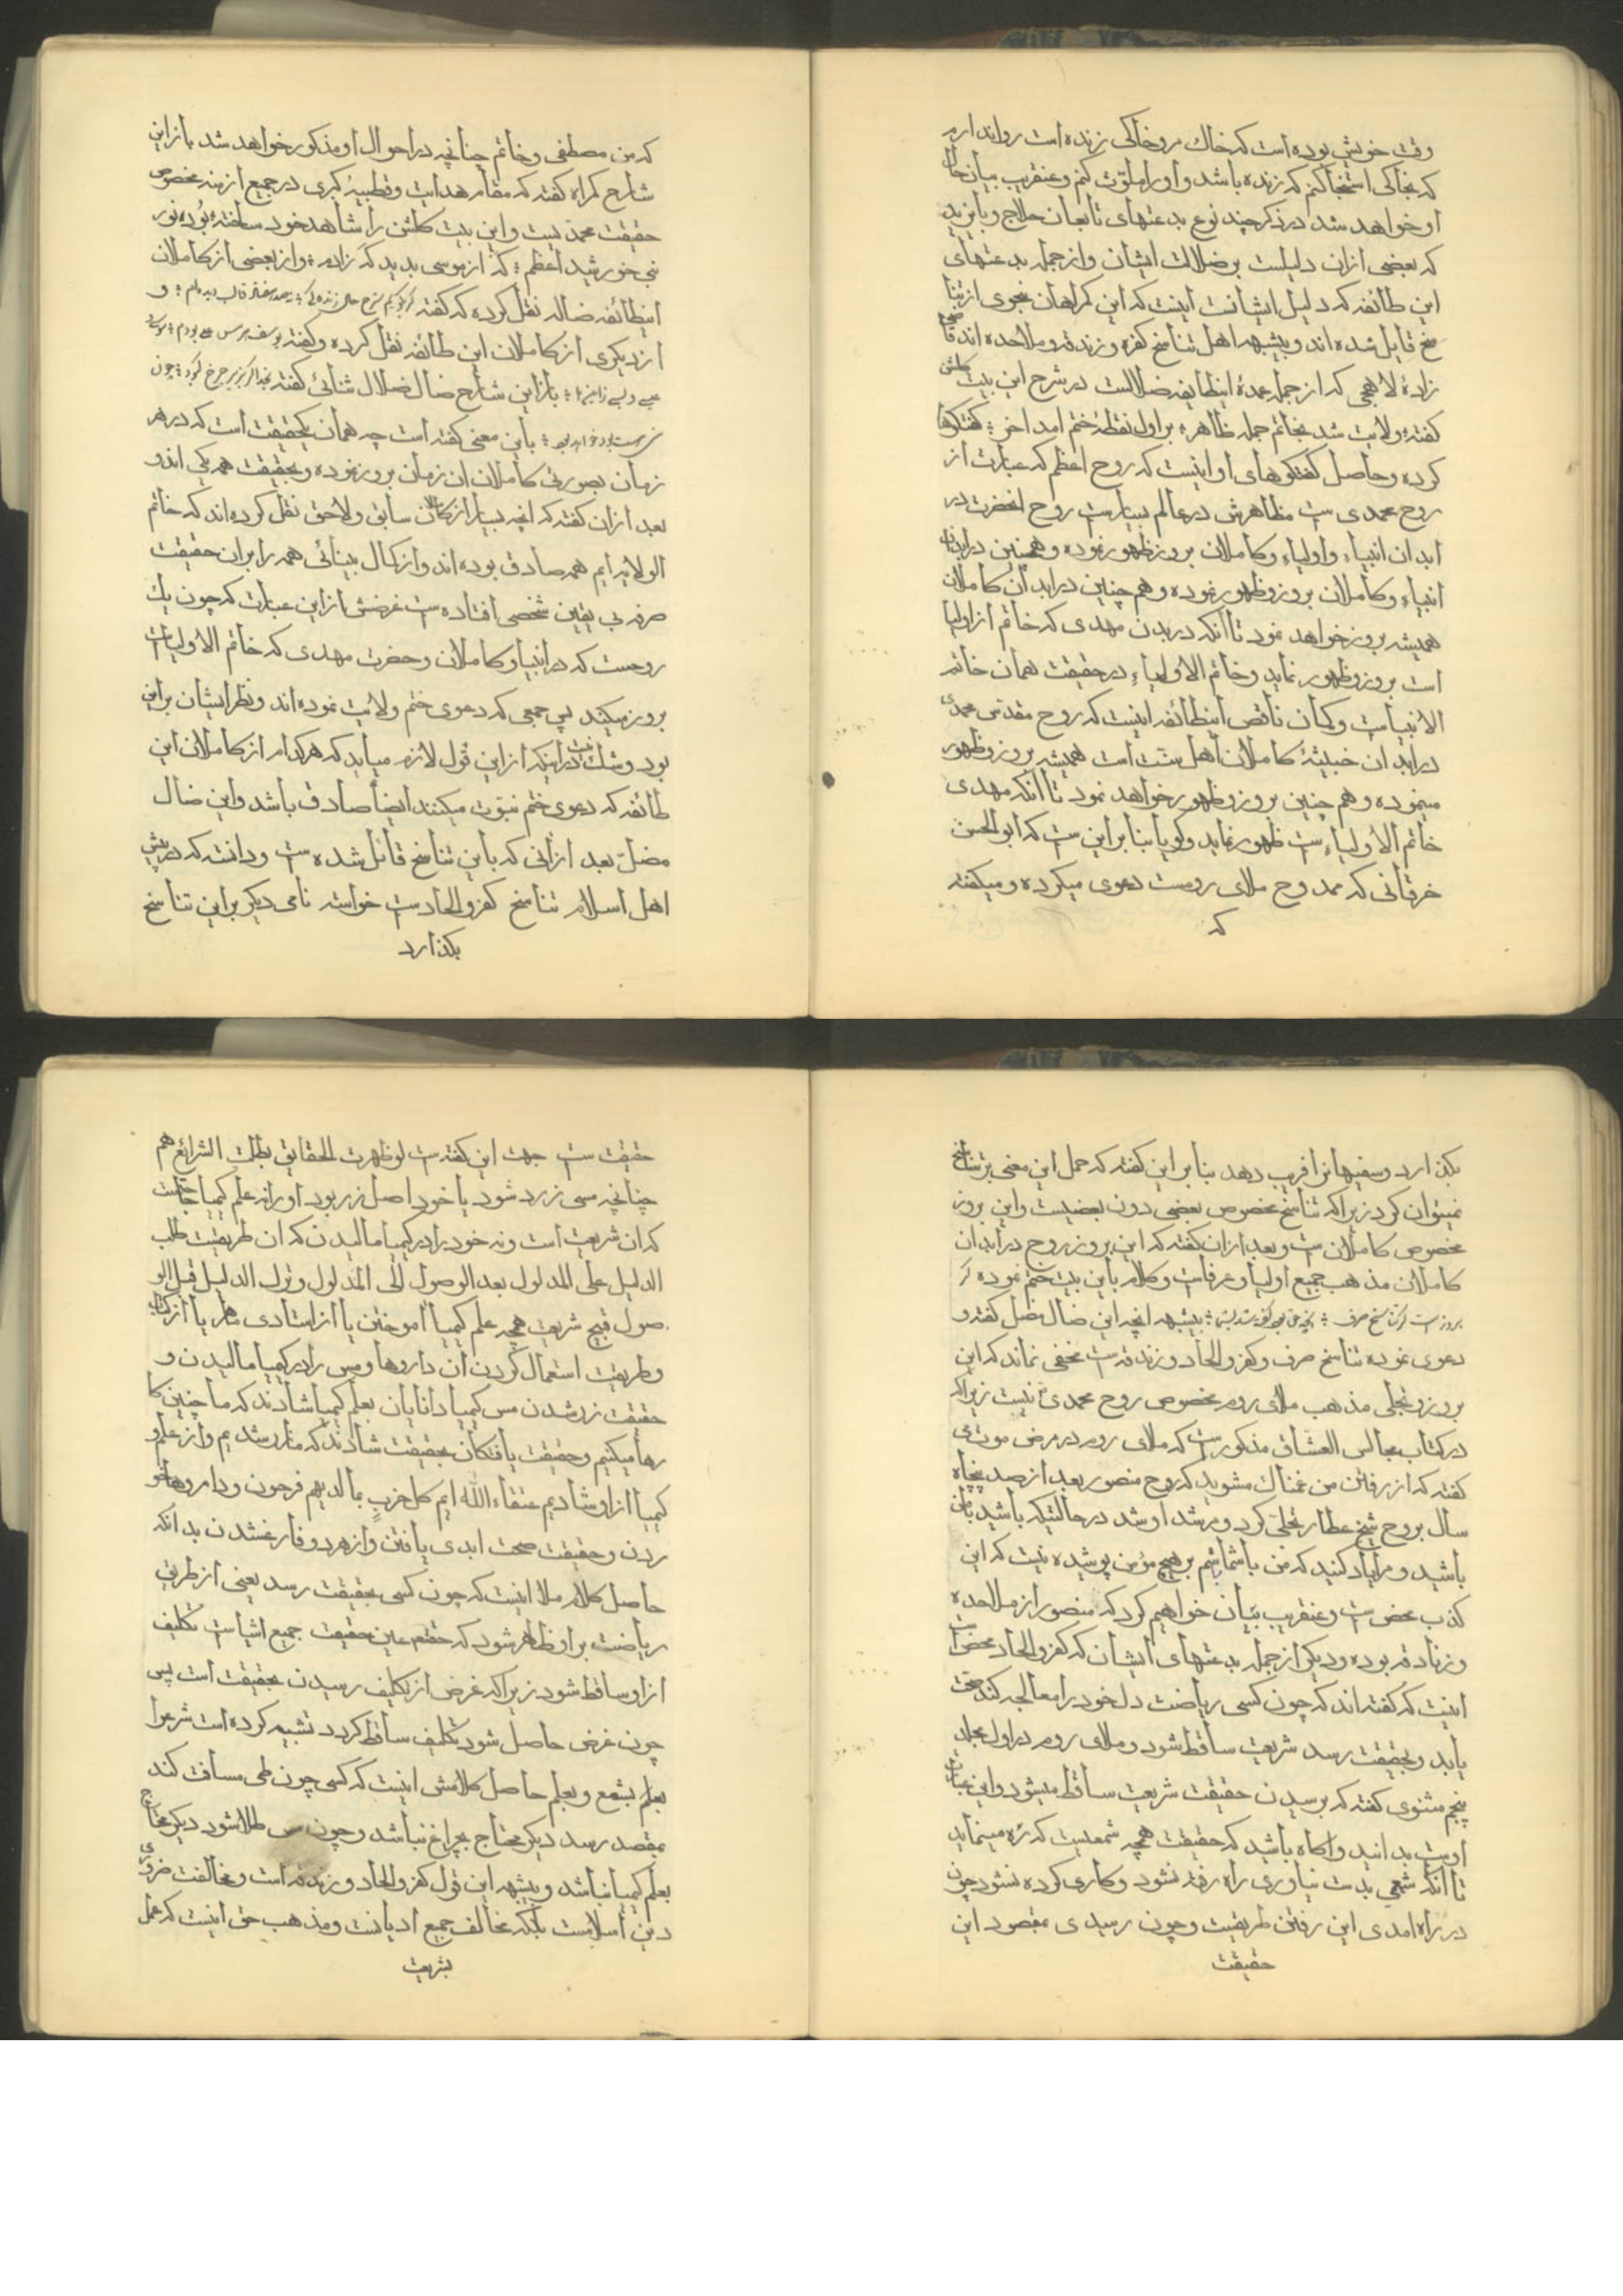 وقت خویش بوده است که خاک مروخاکی زنده است روا ندارم
که بخاکی استنجا کنم که زنده باشد و او را ملوّث کنم و عنقریب بیان حال
او خواهد شد در ذکر چند نوع بدعتهای تابعان حلاج و بایزید
که بعضی ازان دلیلست بر ضلالت ایشان و از جمله بدعتهای
این طائفه که دلیل ایشانست اینست که این کمراهان بنحوی از تنا
سخ قایل شده اند و بیشبهه اهل تناسخ کفره و زندقه و ملاحده اند
زادهٔ لاهجی که از جمله عمدهٔ اینطایفه ضلالست در شرح این بیت کلشن
کفته ولایت شد بخاتم جمله ظاهر؛ بر اول نقطهٔ ختم امد اخر؛ کفتکوها
کرده و حاصل کفتکوهای او اینست که روح اعظم که عبارت از
روح محمدی ست مظاهرش در عالم بسیارست روح انحضرت در
ابدان انبیاء و اولیاء و کاملان بروز و ظهور نموده و همچنین در ابدان
انبیاء و کاملان بروز و ظهور نموده و هم چنین در ابدان کاملان
همیشه بروز خواهد نمود تا آنکه در بدن مهدی که خاتم از اولیا
است بروز و ظهور نماید و خاتم الاولیاء در حقیقت همان خاتم
الانبیاست و کمان ناقص اینطائفه اینست که روح مقدس محمدی
در ابدان خبیثهٔ کاملان اهل سنت است همیشه بروز و ظهور
مینموده و هم چنین بروز و ظهور خواهد نمود تا آنکه مهدی
خاتم الاولیاء ست ظهور نماید و کویا بنا بر این ست که ابو الحسن
خرقانی که ممدوح ملای رومست دعوی میکرده و میکفته
که
که من مصطفی و خاتم چنانچه در احوال او مذکور خواهد شد باز این
شارح کمراه کفته که مقام هدایت و قطبیهٔ کبری در جمیع ازمنه مخصوص
حقیقت محمدیست و این بیت کلشن را شاهد خود ساخته بُود نور
نبی خورشید اعظم؛ که از موسی بدید که ز ادم؛ و از بعضی از کاملان
اینطائفه ضاله نقل کرده که کفته کر بکویم شرح حال زنده کی؛ نهصد هفتاد قالب دیده‌ام؛ و
از دیکری از کاملان این طائفه نقل کرده و کفته
باز این شارح ضال ضلال شنائی کفته
باین معنی کفته است چه همان یکحقیقت است که در هر
زمان بصورتی کاملان ان زمان بروز نموده و بحقیقت همه یکی اند و
بعد ازان کفته که انچه بسیار از کاملان سابق و لاحق نقل کرده اند که خاتم
الولایه ایم همه صادق بوده اند و از کمال بینائی همه را بران حقیقت
صرفه بی یقین شخصی افتاده ست غرضش از این عبارت که چون یک
روحست که در انبیا و کاملان و حضرت مهدی که خاتم الاولیاست
بروز میکند پس جمعی که دعوی ختم ولایت نموده اند و نظر ایشان بر این
بود و شک نیست در اینکه از این قول لازم میاید که هر کدام از کاملان این
طائفه که دعوی ختم نبوت میکنند ایضا صادق باشد و این ضال
مضلّ بعد از آنی که باین تناسخ قائل شده ست و دانسته که در پیش
اهل اسلام تناسخ کفر و الحاد ست خواسته نامی دیکر بر این تناسخ
بکذارد
بکذارد و سفیهانرا فریب دهد بنا بر این کفته که حمل این معنی بر تناسخ
نمیتوان کرد زیرا که تناسخ مخصوص بعضی دون بعضیست و این بروز
مخصوص کاملان ست و بعد ازان کفته که این بروز روح در ابدان
کاملان مذهب جمیع اولیا و عرفاست و کلام باین بیت ختم نموده
بیشبهه انچه این ضال مضل کفته و
دعوی نموده تناسخ صرف و کفر و الحاد و زندقه ست مخفی نماند که این
بروز و تجلی مذهب ملای روم مخصوص روح محمدی نیست زیرا که
در کتاب مجالس العشاق مذکور است که ملای روم در مرض موت
کفته که از رفتن من غمناک مشوید که روح منصور بعد از صد پنجاه
سال بروح شیخ عطار تجلی کرد و مرشد او شد در حالتیکه باشید بامن
باشید و مرا یاد کنید که من با شما باشم بر هیچ مؤمن پوشیده نیست که این
کذب محض ست و عنقریب بیان خواهیم کرد که منصور از ملاحده
و زنادقه بوده و دیکر از جمله بدعتهای ایشان که کفر و الحاد محض است
اینست که کفته اند که چون کسی ریاضت دل خود را معالجه کند صحت
یابد و بحقیقت رسد شریعت ساقط شود و ملای روم در اول مجلد
پنجم مثنوی کفته که برسیدن حقیقت شریعت ساقط میشود و این عبارت
اوست بدانید و اکاه باشید که حقیقت همچه شمعیست که ره مینماید
تا آنکه شمعی بدست نیاوری راه رفته نشود و کاری کرده نشود چون
در راه امدی این رفتن طریقت و چون رسیدی بمقصود این
حقیقت
حقیقت ست جهت این کفته ست لو ظهرت الحقایق بطلت الشرائع هم
چنانچه مسی زرد شود یا خود اصل زر بود او را نه علم کیمیا حاجتست
که ان شریعت است و نه خود را در کیمیا مالیدن که ان طریقت طلب
الدلیل علی المدلول بعد الوصول الی المدلول و ترک الدلیل قبل الو
صول قبیح شریعت همچه علم کیمیا آموختن یا از استادی ماهر یا از کتاب
و طریقت استعمال کردن ان داروها و مس را در کیمیا مالیدن و
حقیقت زر شدن مس کیمیا دانایان بعلم کیمیا شادند که ما چنین کا
رها میکنیم و حقیقت یافتکان بحقیقت شادند که ما زر شدیم و از علم و
کیمیا ازاد شادیم عتقاء الله ایم کل حزبٍ بما لدیهم فرحون و داروها خو
ردن و حقیقت صحت ابدی یافتن و از هر دو فارغ شدن بدانکه
حاصل کلام ملا اینست که چون کسی بحقیقت رسد یعنی از طریق
ریاضت بر او ظاهر شود که حقتعم عین حقیقت جمیع اشیاست تکلیف
از او ساقط شود زیرا که غرض از تکلیف رسیدن بحقیقت است پس
چون غرض حاصل شود تکلیف ساقط کردد تشبیه کرده است شرع را
بعلم بشمع و بعلم حاصل کلامش اینست که کسی چون طی مسافت کند
بمقصد رسد دیکر محتاج بچراغ نباشد و چون مس طلا شود دیکر محتاج
بعلم کیمیا نباشد و بیشبهه این قول کفر و الحاد و زندقه است و مخالفت ضروری
دین اسلامست بلکه مخالف جمیع ادیانست و مذهب حق اینست که عمل
بشریعت